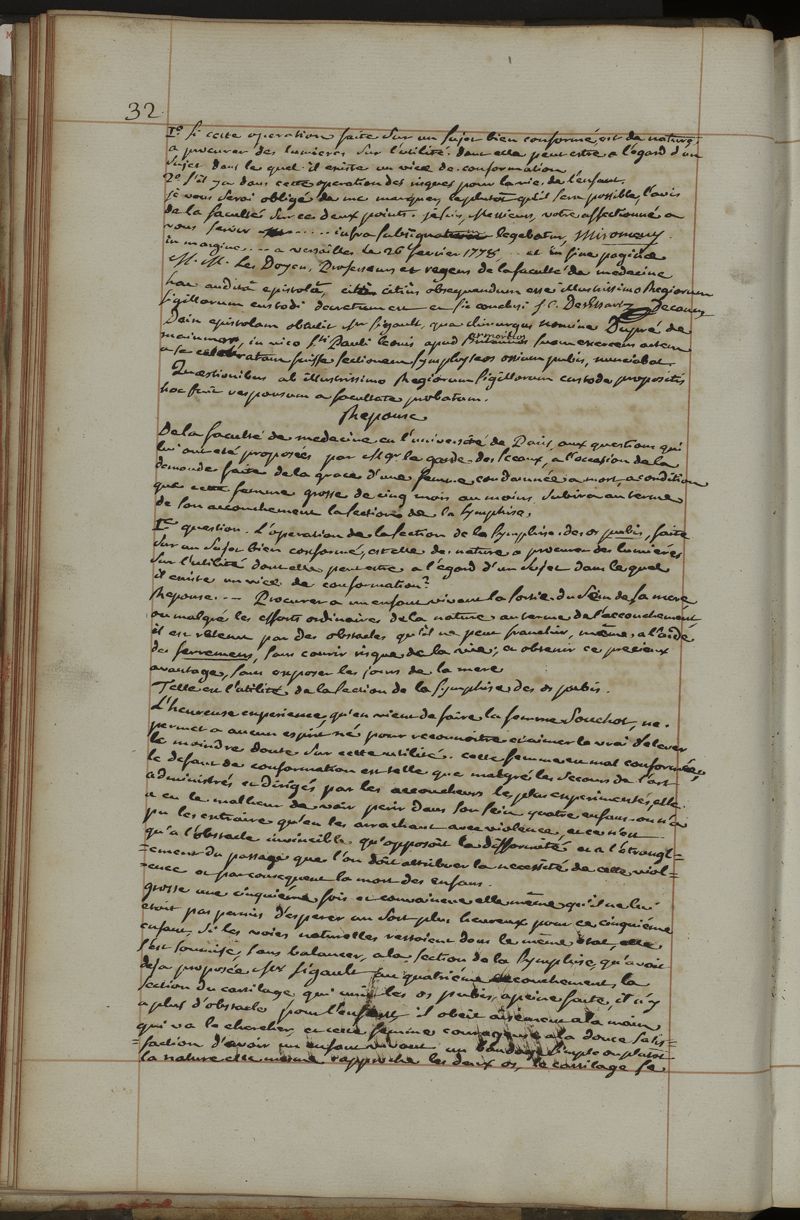 32
1º Si cette operation faite sur un sujet bien conformé, est de nature
a procurer des lumieres sur l'utilité dont elle peut estre a l'égard d'un
sujet dans le quel il existe un vice de conformation.
2º s'il y a dans cette operation des risques pour la vie de l'enfant.
je vous serai obligé de me marquer, le plutost qu'il sera possible, l'avis
de la faculté sur ces deux points. je suis, Messieurs, votre affectionné a
vous servir ..... infra subsignatum legebatur, Miromeny.
in margine ... a versailles le 26 fevrier 1778 .. et in fine paginæ
M. M. Les Doyen, Professeurs et regens de la faculté de medecine
hac auditâ epistolâ, citius obsequendum esse illustrissimo Regiorum
sigillorum custodi decretum est et sic conclusi J C. Desessartz Decanus
Dein epistolam obtulit Mr Sigault, qua chirurgus nomine Dupré de
mainmors, in vico Sti Pauli leonis apud armoricos suam exercens artem
a se celebratam fuisse sectionem symphyseos ossium pubis, nunciabat.
Quæstionibus ab illustrissimo Regiorum sigillorum custode propositis
hoc fuit responsum a facultate probatum.
Reponse
De la faculté de medecine en l'université de Paris, aux questions qui
lui ont eté proposées par Mgr le garde des sceaux, a l'occasion de la
demande faite de la grace d'une femme condamnée a mort, a condition
que cette femme grosse de cinq mois au moins subira au terme
de son accouchement la section de la symphise.
1re question. L'operation de la section de la symphise des os pubis, faite
sur un sujet bien conformé, est elle de nature a procurer des lumiéres
sur l'utilité dont elle peut etre a l'egard d'un sujet dans le quel
il existe un vice de conformation?
Reponse. -- Procurer a un enfant vivant la sortie du sein de sa mere
ou malgré les efforts ordinaires de la nature au terme de l'accouchement
il est retenu par des obstacles qu'il ne peut franchir, même a l'aide
des ferremens, sans courir risque de la vie; et obtenir ce precieux
avantage, sans exposer les jours de la mere
Telle est l'utilité de la section de la symphise des os pubis.
L'heureuse experience, qu'en vient de faire la femme Souchot, ne
permet a aucun esprit né pour reconnoitre et aimer le vrai d'elever
le moindre doute sur cette utilité. cette femme est mal conformée;
le defaut de conformation est telle que malgré les secours de l'art
administrés et dirigés par les accoucheurs les plus experimentés, elle
a eu le malheur de voir perir dans son sein quatre enfans. on n'a
pu les extraire qu'en les arrachant avec violence, et ce n'est
qu'a l'obstacle invincible qu'opposoit la difformité et a l'étrangl=
=ement du passage que l'on doit attribuer la necessité de cette viol=
=ence et par consequent la mort des enfans.
grosse une cinquiéme fois et convaincue elle même qu'il ne lui
etoit pas permis d'esperer un sort plus heureux pour ce cinquiéme
enfant, si les voies naturelles restoient dans le même état, elle
s'est soumise, sans balancer, a la section de la symphise, qu'avoit
deja proposée Mr Sigault au quatriéme accouchement, la
section du cartilage qui unit les os pubis, a peine faite, il n'y
a plus d'obstacle pour l'enfant il obeit aisement a la main
qui va le chercher, et cette femme courageuse a la douce satis=
=faction d'avoir un enfant vivant un bandage simple ou plutost
la nature elle même rapproche les deux os, le cartilage se